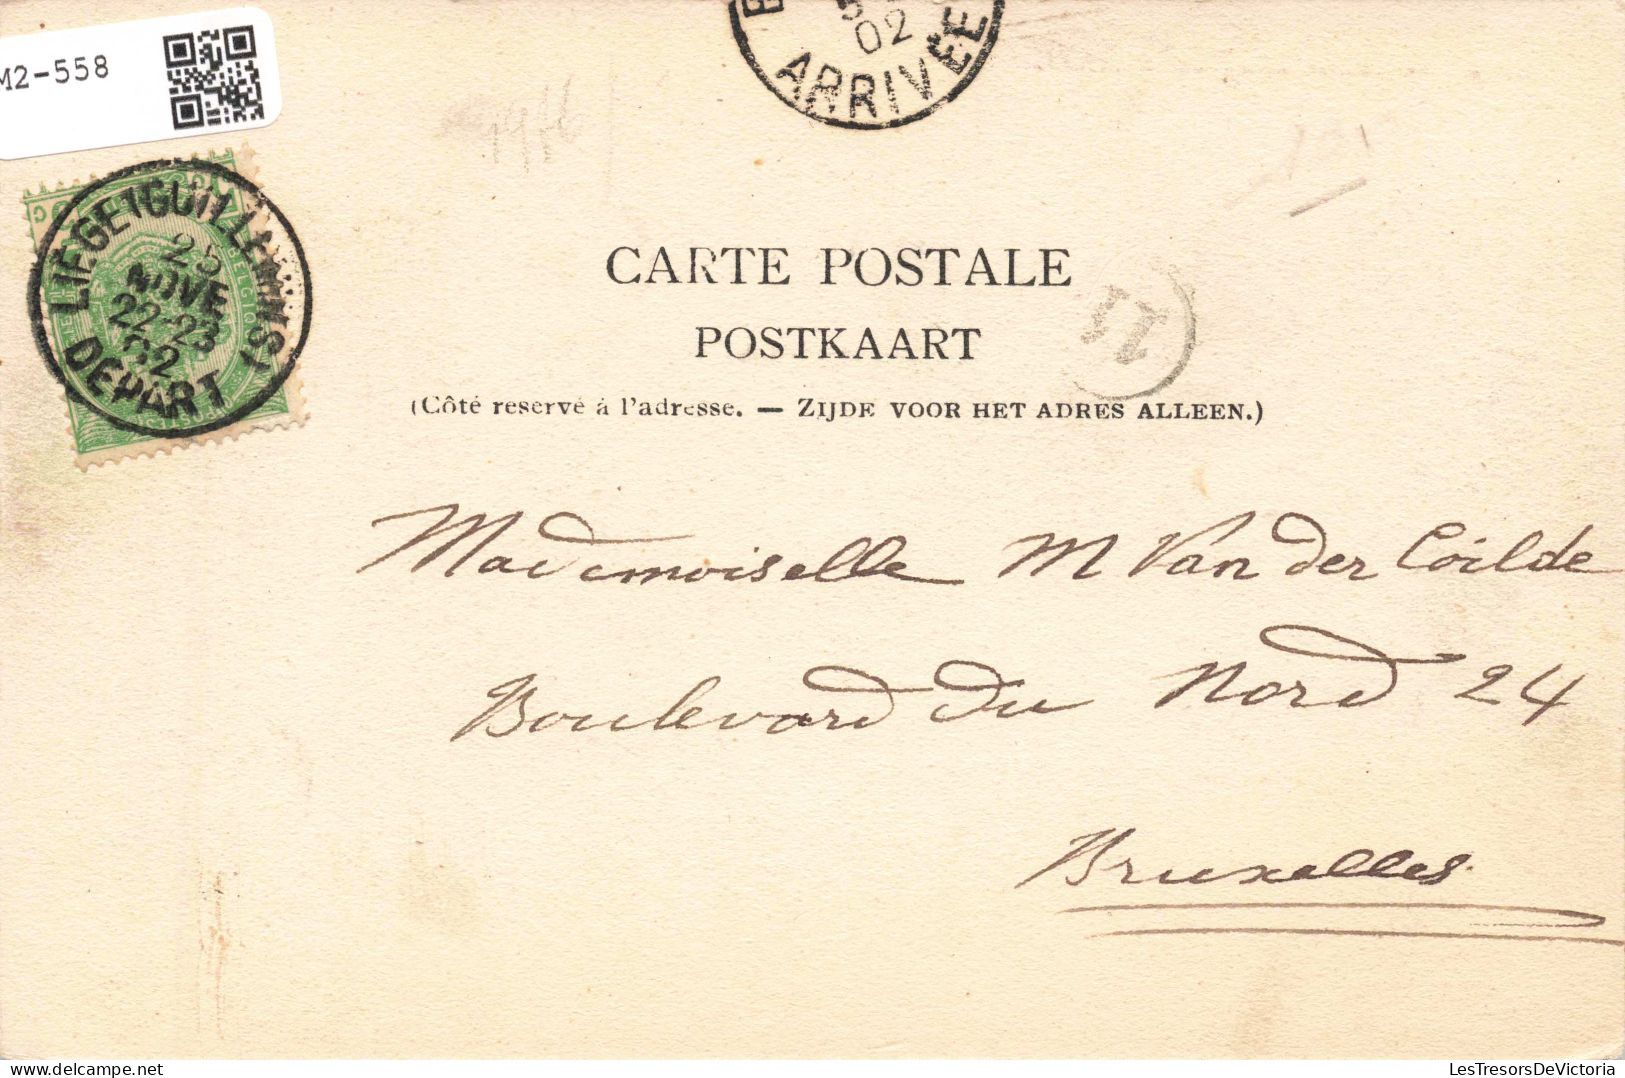 M2-558
02
ARRIVÉE
LIEGE (GUILLEMINS)
25
NOVE
22-23
02
DEPART
CARTE POSTALE
POSTKAART
11
(Côté reservé à l'adresse. — ZIJDE VOOR HET ADRES ALLEEN.)
Mademoiselle M Van der Coilde
Boulevard du Nord 24
Bruxelles
LesTresorsDeVictoria